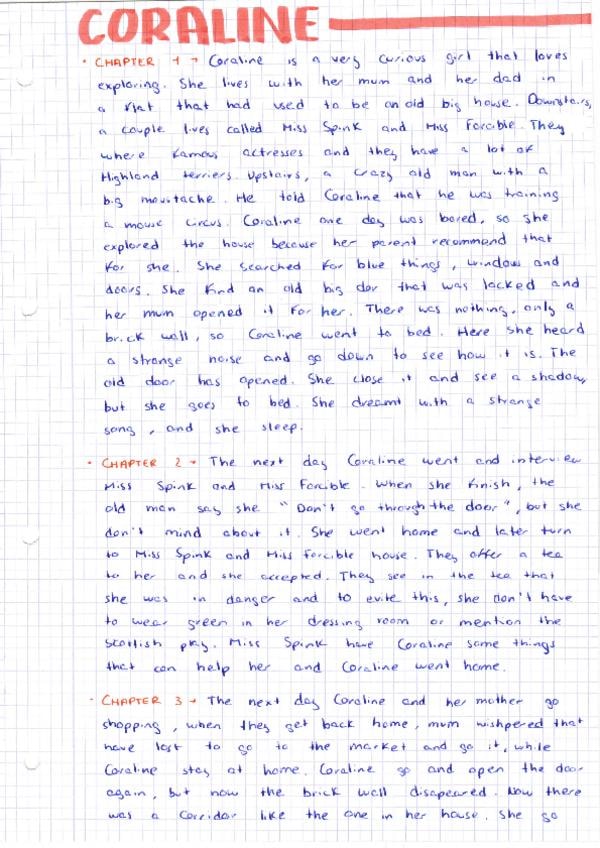 CORALINE
· CHAPTER 1 → Coraline is a very curious girl that loves
exploring. She lives with her mum and her dad in
a flat that had used to be an old big house. Downstairs,
a couple lives called Miss Spink and Miss Forcible. They
where famous actresses and they have a lot of
Highland terriers. Upstairs, a crazy old man with a
big moustache. He told Coraline that he was training
a mouse circus. Coraline one day was bored, so she
explored the house because her parent recommend that
for she. She searched for blue things, windows and
doors. She find an old big dor that was locked and
her mum opened it for her. There was nothing, only a
brick wall, so Coraline went to bed. Here she heard
a strange noise and go down to see how it is. The
old door has opened. She close it and see a shadow,
but she goes to bed. She dreamt with a strange
song, and she sleep.
· CHAPTER 2 → The next day Coraline went and interview
Miss Spink and Miss Forcible. When she finish, the
old man say she "Don't go through the door", but she
don't mind about it. She went home and later turn
to Miss Spink and Miss Forcible house. They offer a tea
to her and she accepted. They see in the tea that
she was in danger and to evite this, she don't have
to wear green in her dressing room or mention the
Scottish play. Miss Spink have Coraline some things
that can help her and Coraline went home.
· CHAPTER 3 → The next day Coraline and her mother go
shopping, when they get back home, mum wishpered that
have lost to go to the market and go it, while
Coraline stay at home. Coraline go and open the door
again, but now the brick wall disapeared. Now there
was a Corridor like the one in her house. She go